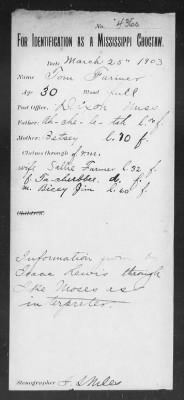 No. 4360
FOR IDENTIFICATION AS A MISSISSIPPI CHOCTAW.
Date March 25th 1903
Name Tom Farmer
Age 30 Blood full
Post Office, Dixon Miss
Father: f.
Mother: Betsey l. 70 f.
Claims through f & m.
wife Sallie Farmer l. 32 f.
f. d. f.
m. Bicey Jim l. 60 f.
Children:
Information given by
Isaac Lewis through
Ike Moses as
interpreter.
Stenographer F. S. Miles